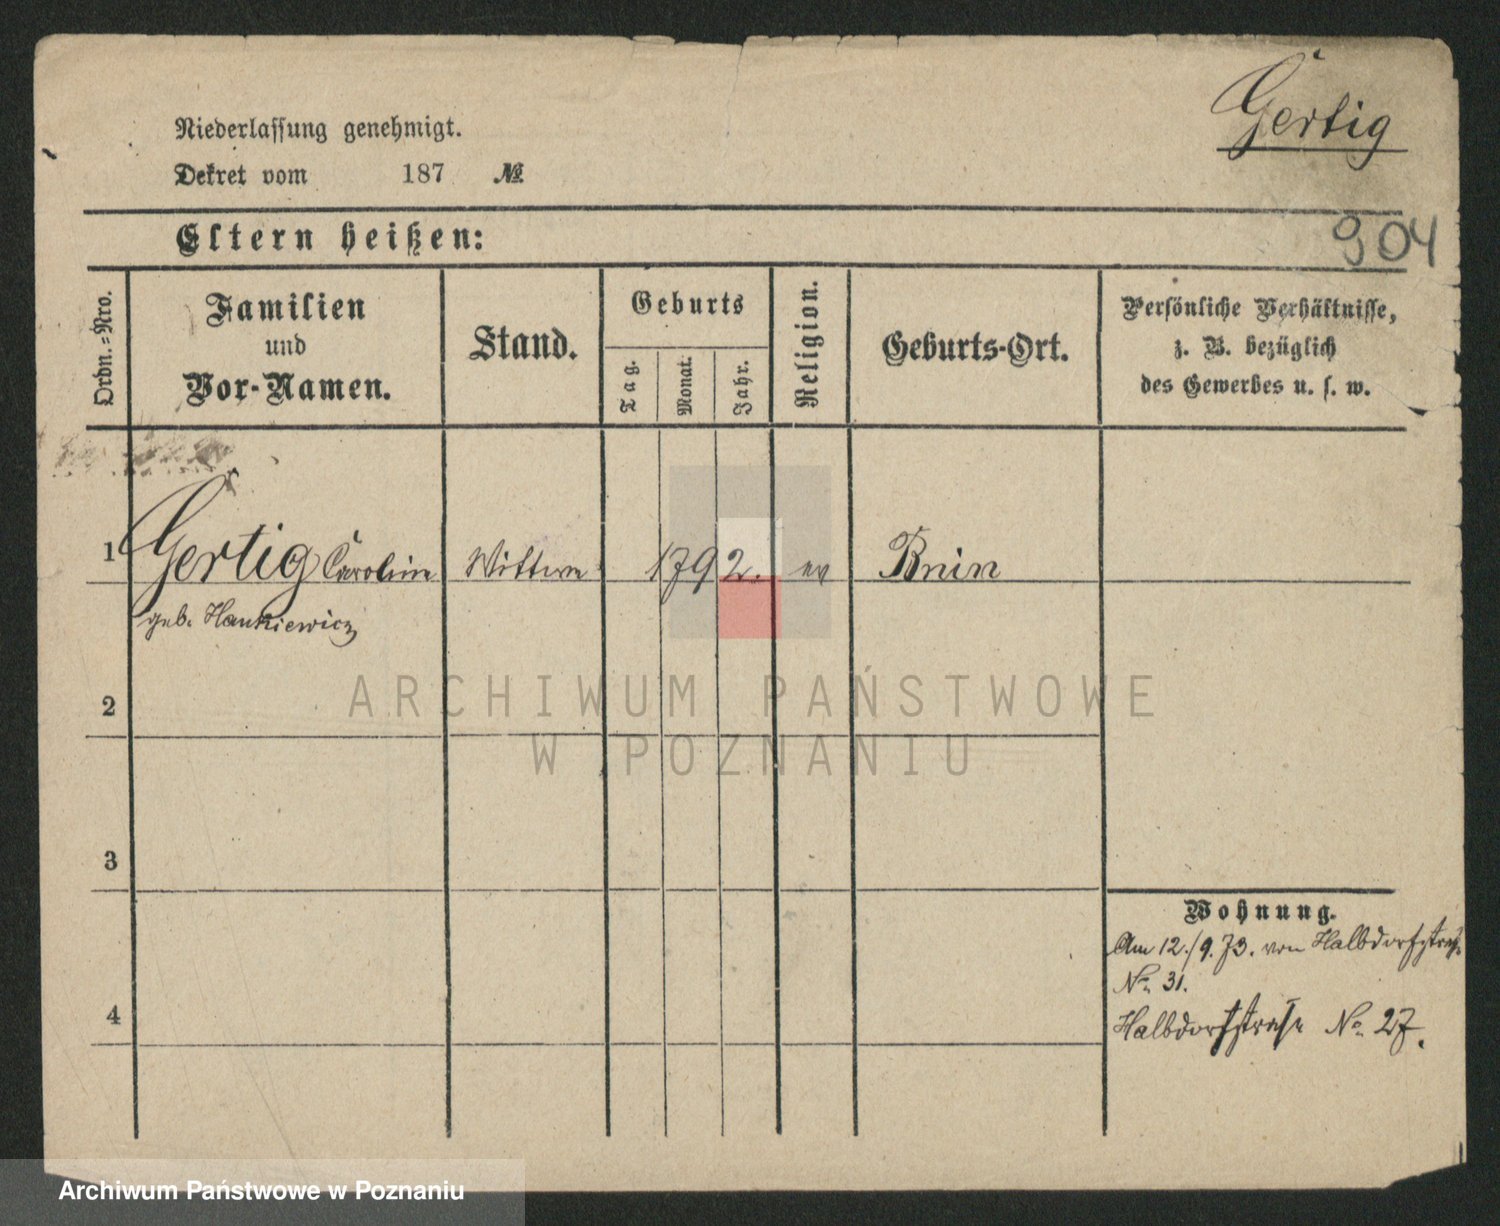 Gertig
Niederlassung genehmigt.
Dekret vom 187 №
904
Eltern heißen:
Ordn.=Nro.
Familien
und
Vor-Namen.
Stand.
Geburts
Tag.
Monat.
Jahr.
Religion.
Geburts-Ort.
Persönliche Verhältnisse,
z. B. bezüglich
des Gewerbes u. s. w.
1 Gertig Caroline Wittwe 1792. ev Bnin
geb. Hankiewicz
2
3
4
Wohnung.
Am 12./9.73. von Halbdorfstraße
No. 31.
Halbdorfstraße No. 27.
ARCHIWUM PAŃSTWOWE
W POZNANIU
Archiwum Państwowe w Poznaniu